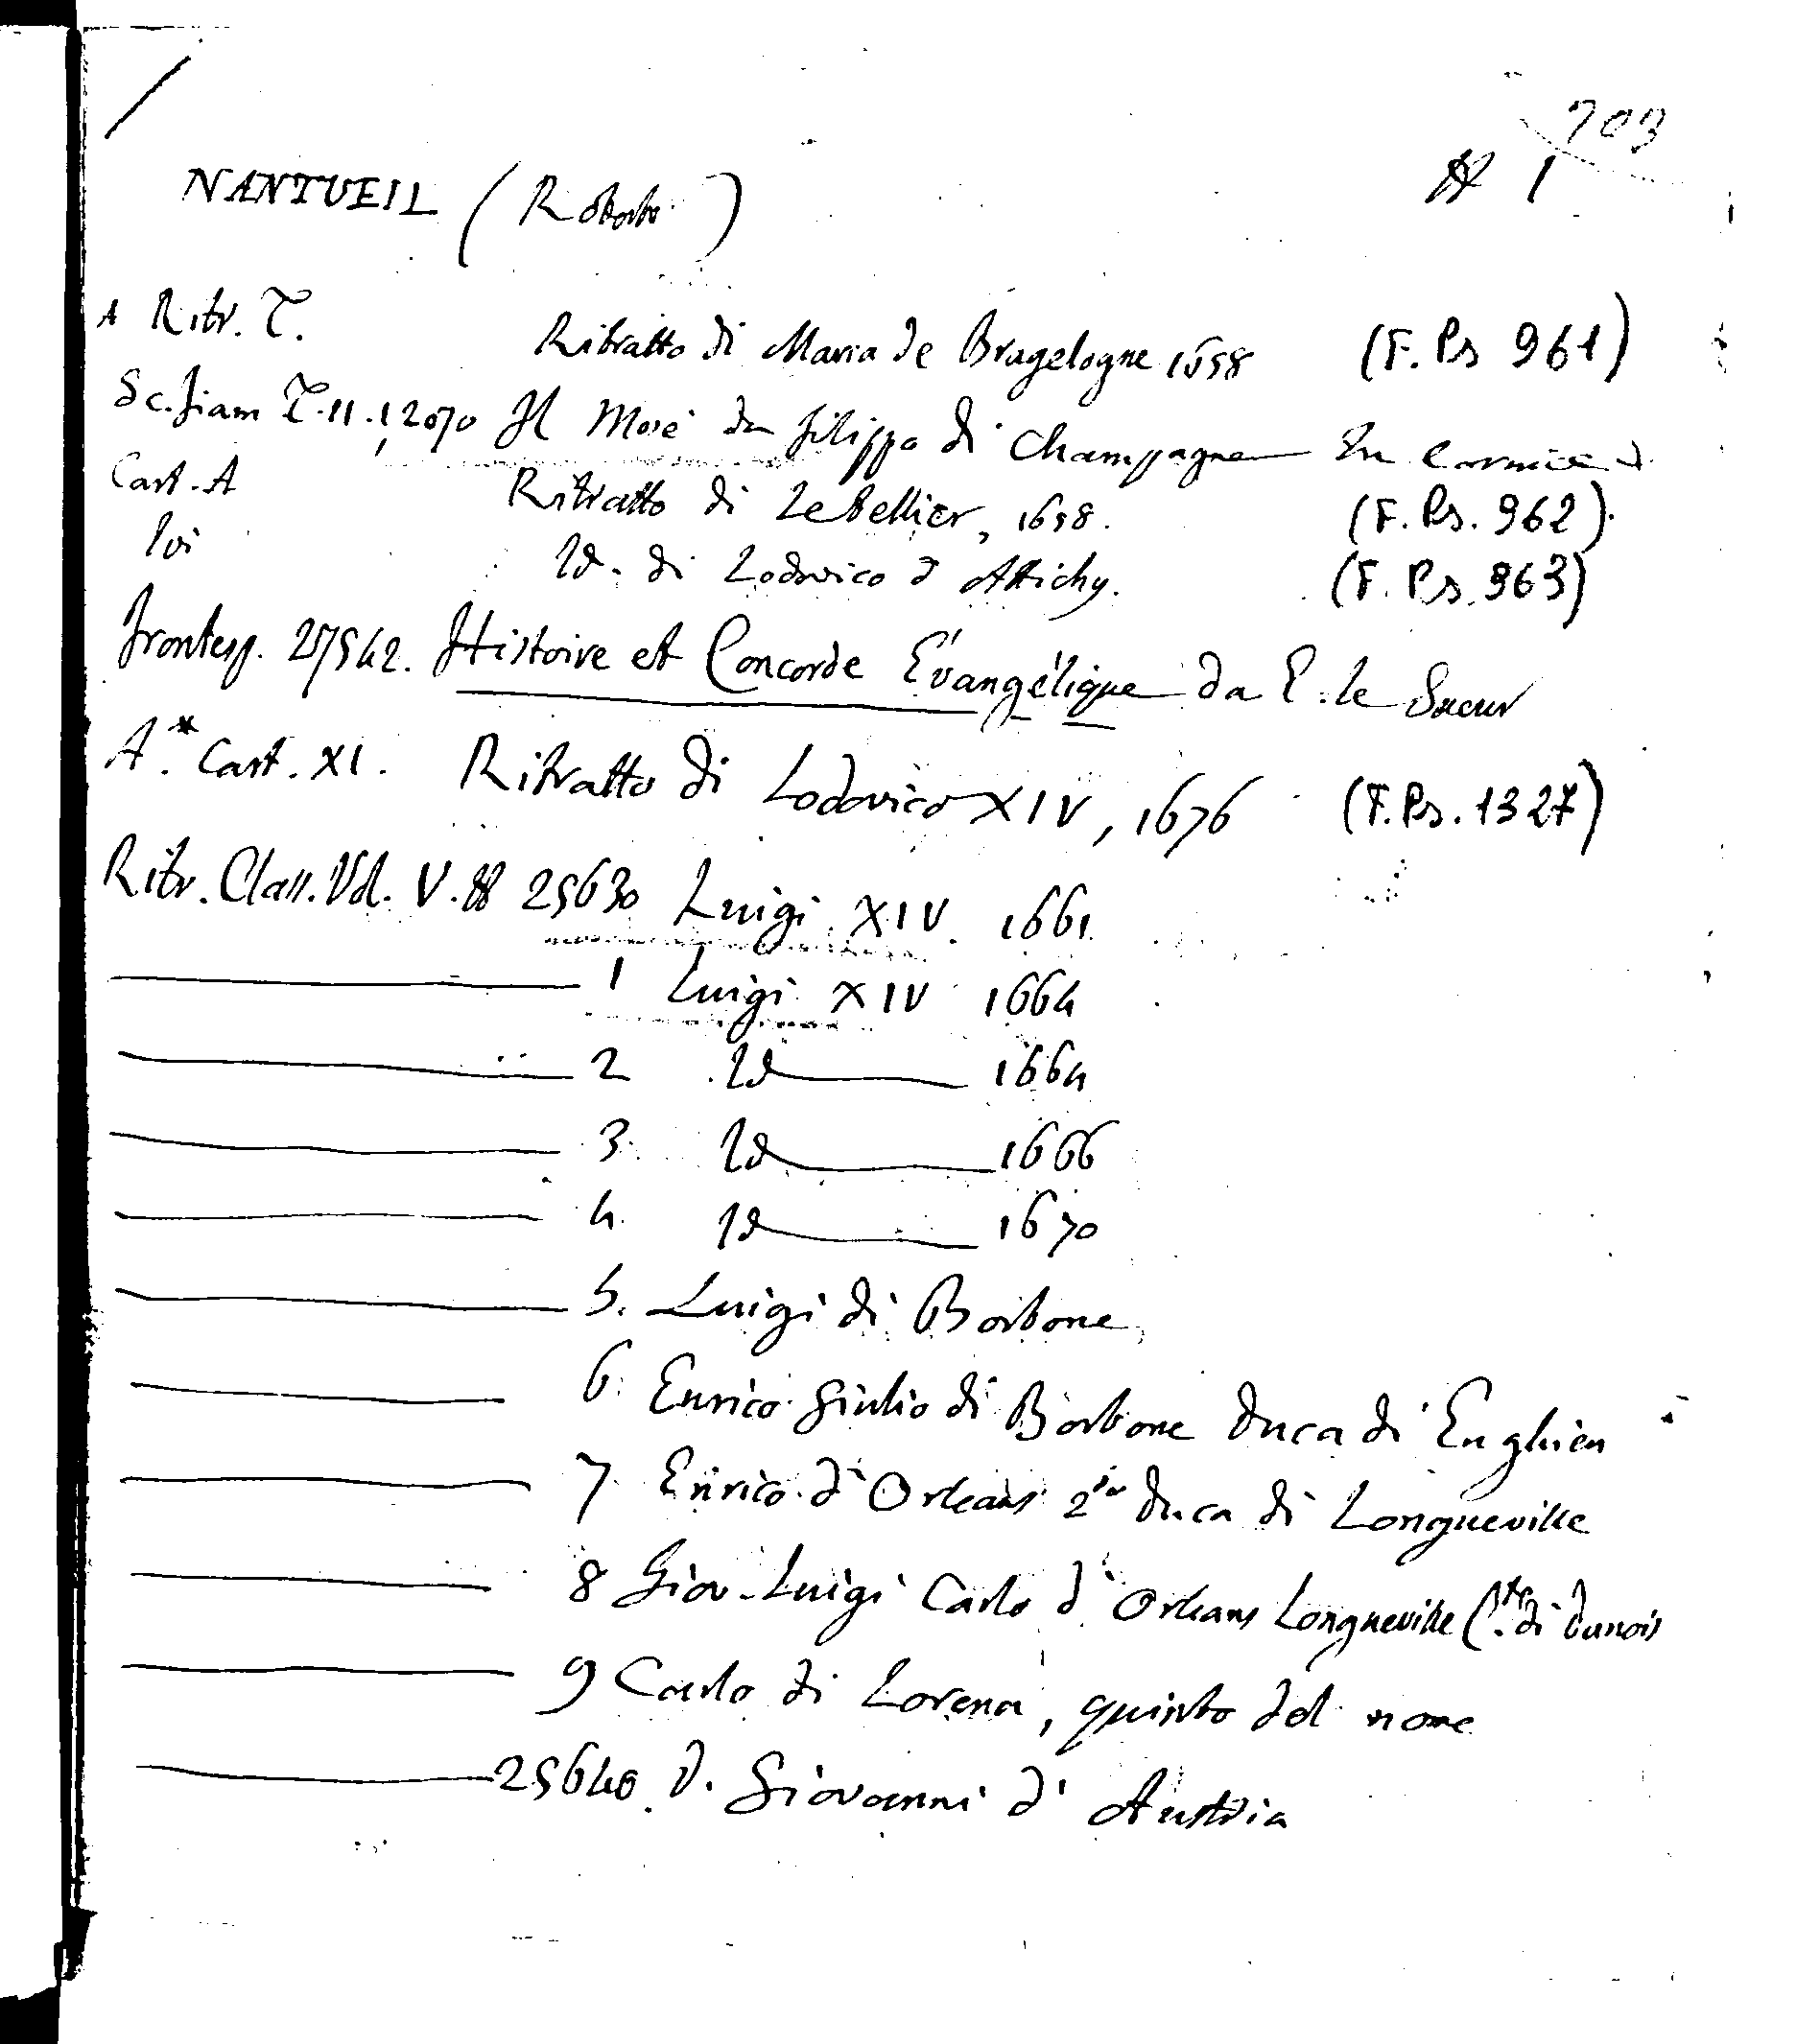 703
NANTUEIL (Roberto) # 1
A Ritr. T. Ritratto di Maria de Bragelogne 1658 (F. Ps 961)
Sc. Giam T. 11. 12070 Il Mosè da Filippo di Champagne In cornice
Cart. A Ritratto di Letellier, 1658. (F. Ps. 962)
Ivi Id. di Lodovico d Attichy. (F. Ps. 963)
Frontesp. 27542. Histoire et Concorde Évangélique da E. le Sueur
A.* Cart. XI. Ritratto di Lodovico XIV, 1676 (F. Ps. 1327)
Ritr. Class. Vol. V. # 25630 Luigi XIV. 1661
1 Luigi XIV 1664
2 Id 1664
3. Id 1666
4. Id 1670
5. Luigi di Borbone
6. Enrico Giulio di Borbone Duca di Enghien
7 Enrico d'Orleans 2do Duca di Longueville
8 Giov. Luigi Carlo d'Orleans Longueville (Cte di Dunois
9 Carlo di Lorena, quinto del nome
25640. D. Giovanni d'Austria